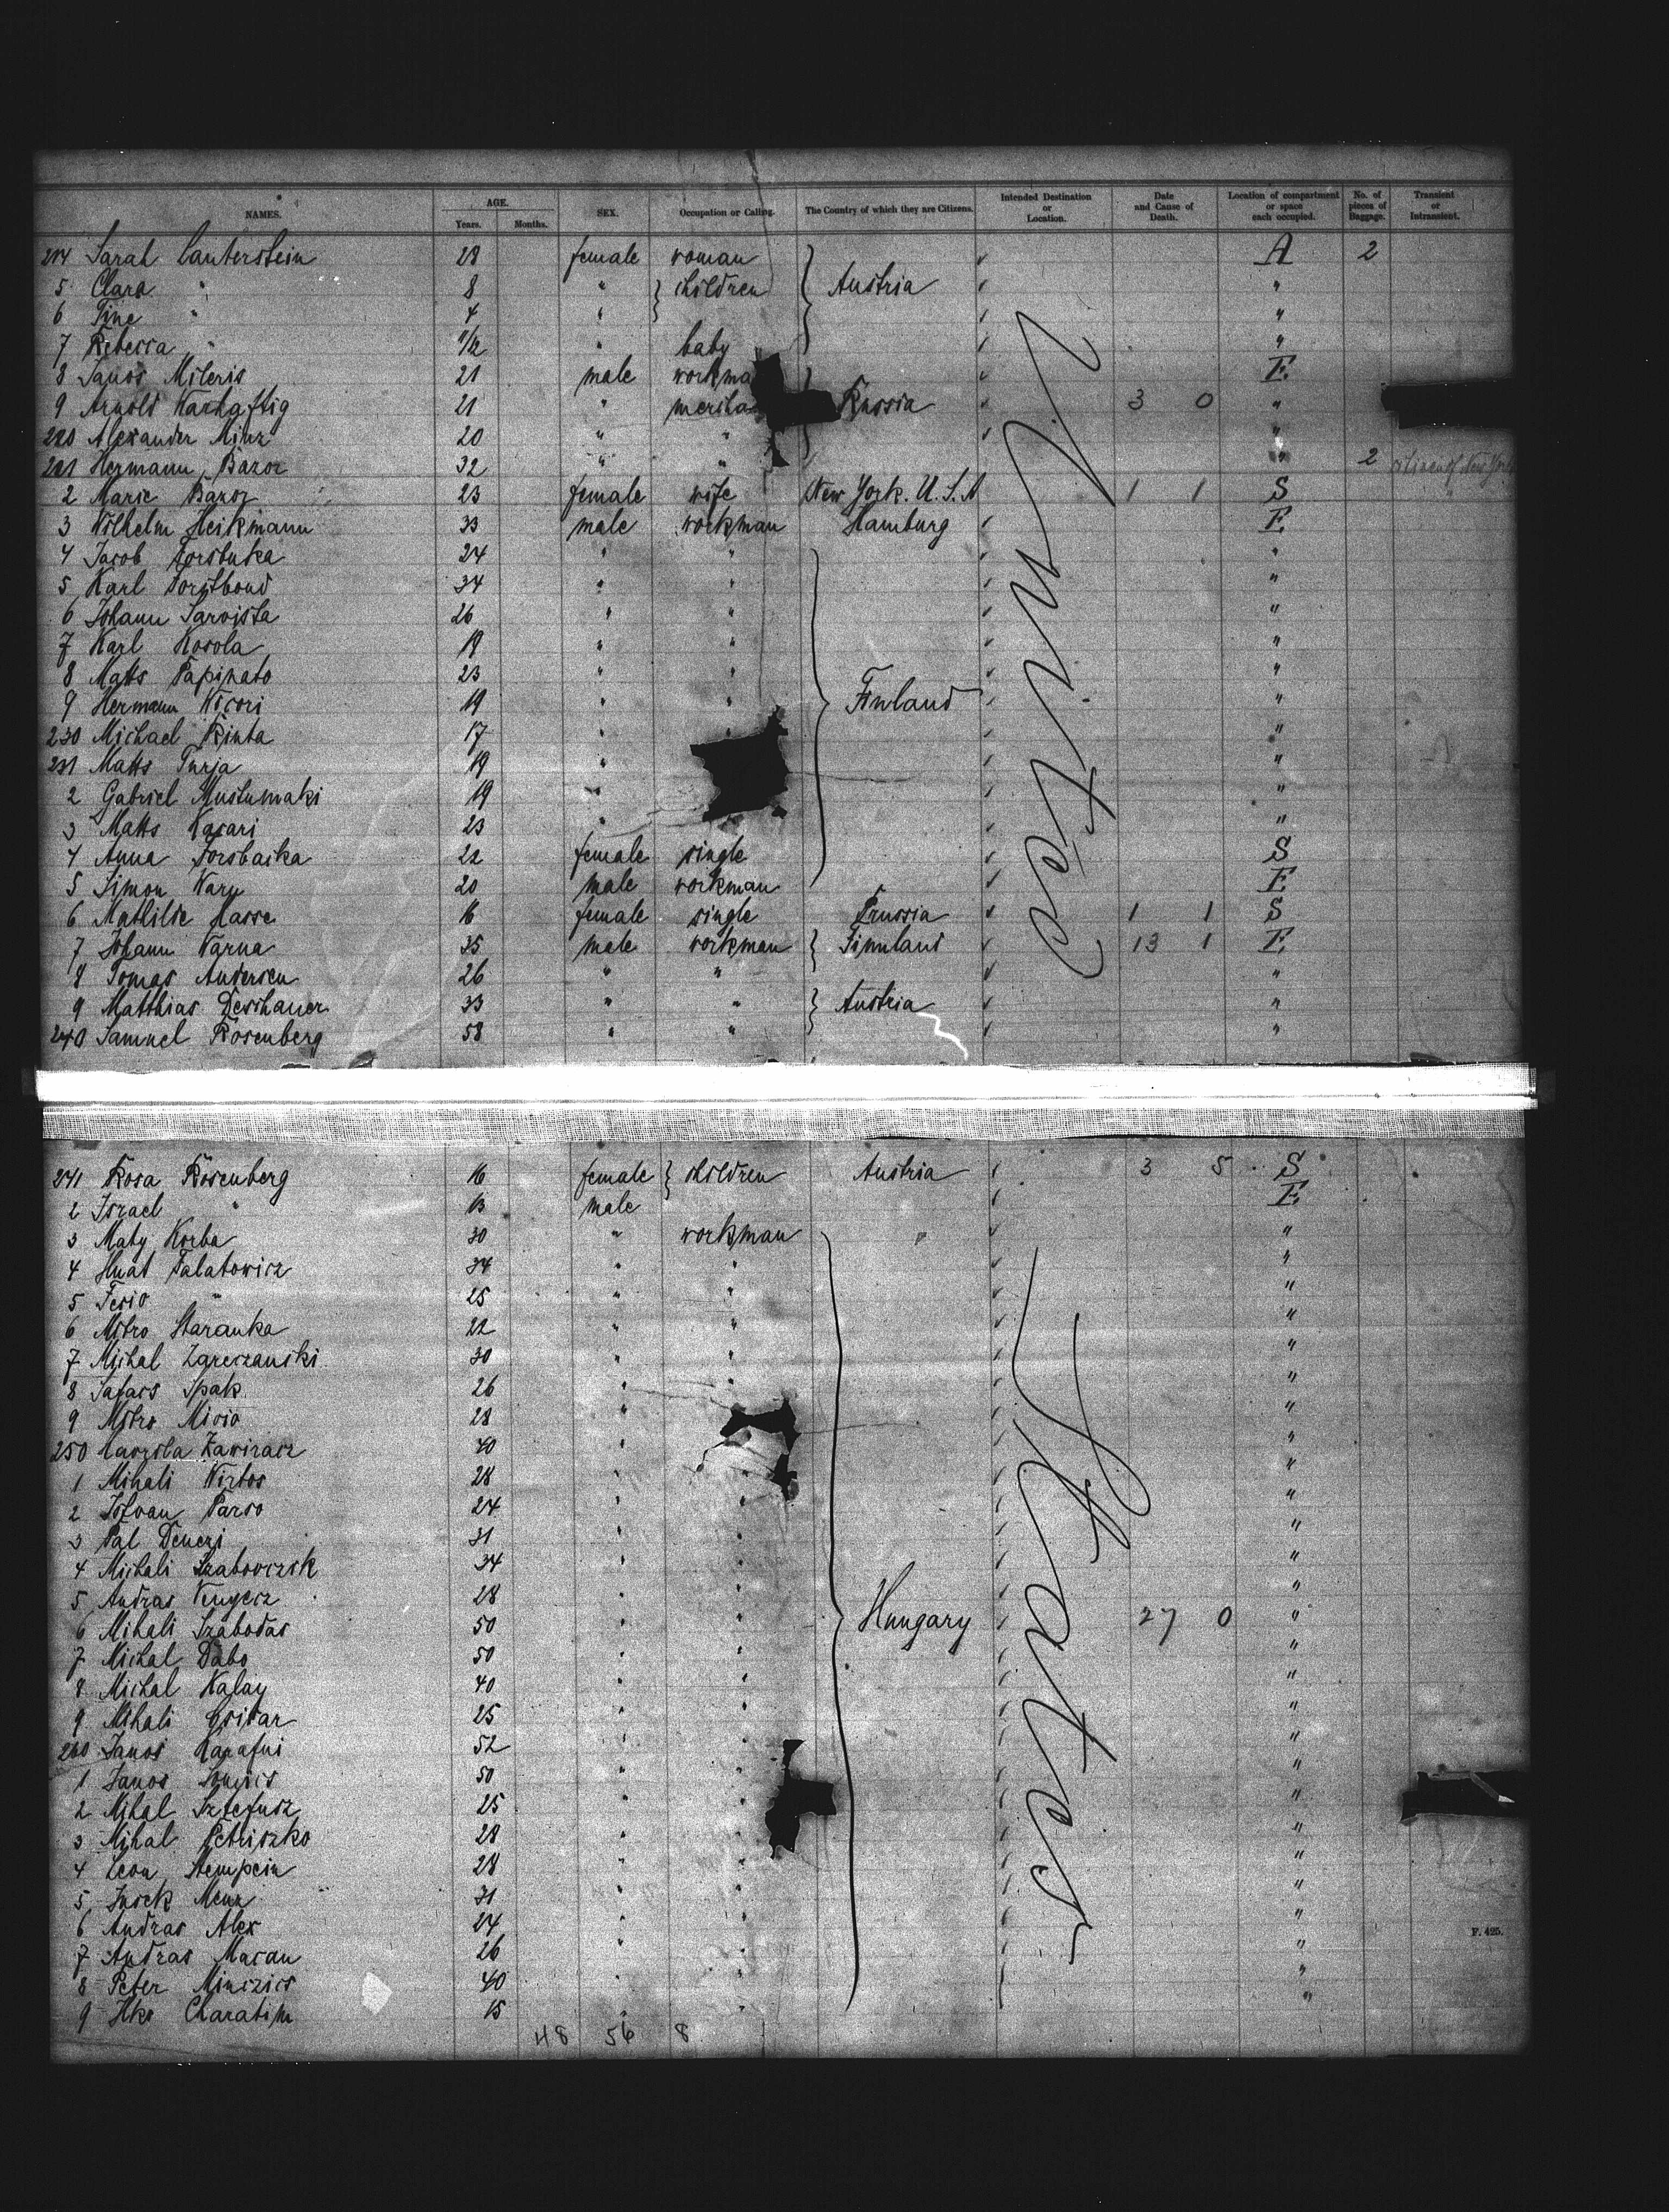 NAMES. AGE. Years. Months. SEX. Occupation or Calling. The Country of which they are Citizens. Intended Destination or Location. Date and Cause of Death. Location of compartment or space each occupied. No. of pieces of Baggage. Transient or Intransient.
214 Sarah Lauterstein 28 female woman A 2
5 Clara " 8 " children Austria "
6 Fine " 4 " "
7 Rebecca " 11/12 " baby "
8 Janos Mileris 21 male workma E
9 Arnold Warhaftig 21 " mercha Russia 3 0 "
220 Alexander Minz 20 " " "
221 Hermann Bazor 32 " " " 2 citizen of New York
2 Marie Bazor 23 female wife New York. U.S.A 1 1 S
3 Wilhelm Heikmann 33 male workman Hamburg E
4 Jacob 24 " " "
5 Karl 34 " " "
6 Johann Sarvista 26 " " "
7 Karl Kosola 19 " " "
8 Matts 23 " " "
9 Hermann 19 " " Finland "
230 Michael Rinta 17 " "
231 Matts Turja 19 " "
2 Gabriel Mustumaki 19 " "
3 Matts Kasari 23 " "
4 Anna 22 female single S
5 Simon Karu 20 male workman E
6 Mathilde Hasse 16 female single Prussia 1 1 S
7 Johann Warna 35 male workman Finnland 13 1 E
8 Tomas Andersen 26 " " "
9 Matthias Deschauer 33 " " Austria "
240 Samuel Rosenberg 58 " " "
241 Rosa Rosenberg 16 female children Austria 3 5 S
2 Israel " 13 male E
3 Maty Korba 30 " workman " "
4 Hnat Palatowicz 34 " " "
5 Fecio " 25 " " "
6 Mitro Staranka 22 " " "
7 Michal Zareczanski 30 " " "
8 Spak 26 " " "
9 Mitro 28 " "
250 40 " "
1 Mihali 28 " " "
2 Istvan 24 " " "
3 Pal Denczi 31 " " "
4 Michali 34 " " "
5 Andras 28 " " "
6 Mihali Szabodas 50 " " Hungary 27 0 "
7 Michal Dabo 50 " " "
8 Michal Kalay 40 " " "
9 Mihali 25 " " "
260 Janos 52 " " "
1 Janos 50 " " "
2 Mihal 25 " "
3 Mihal Petriszko 28 " "
4 Leon Stempein 28 " " "
5 Menz 31 " " "
6 Andras Alex 24 " " "
7 Andras Macan 26 " " "
8 Peter Minczics 40 " " "
9 Charatim 15 " " "
United
States
F. 425.
48 56 8